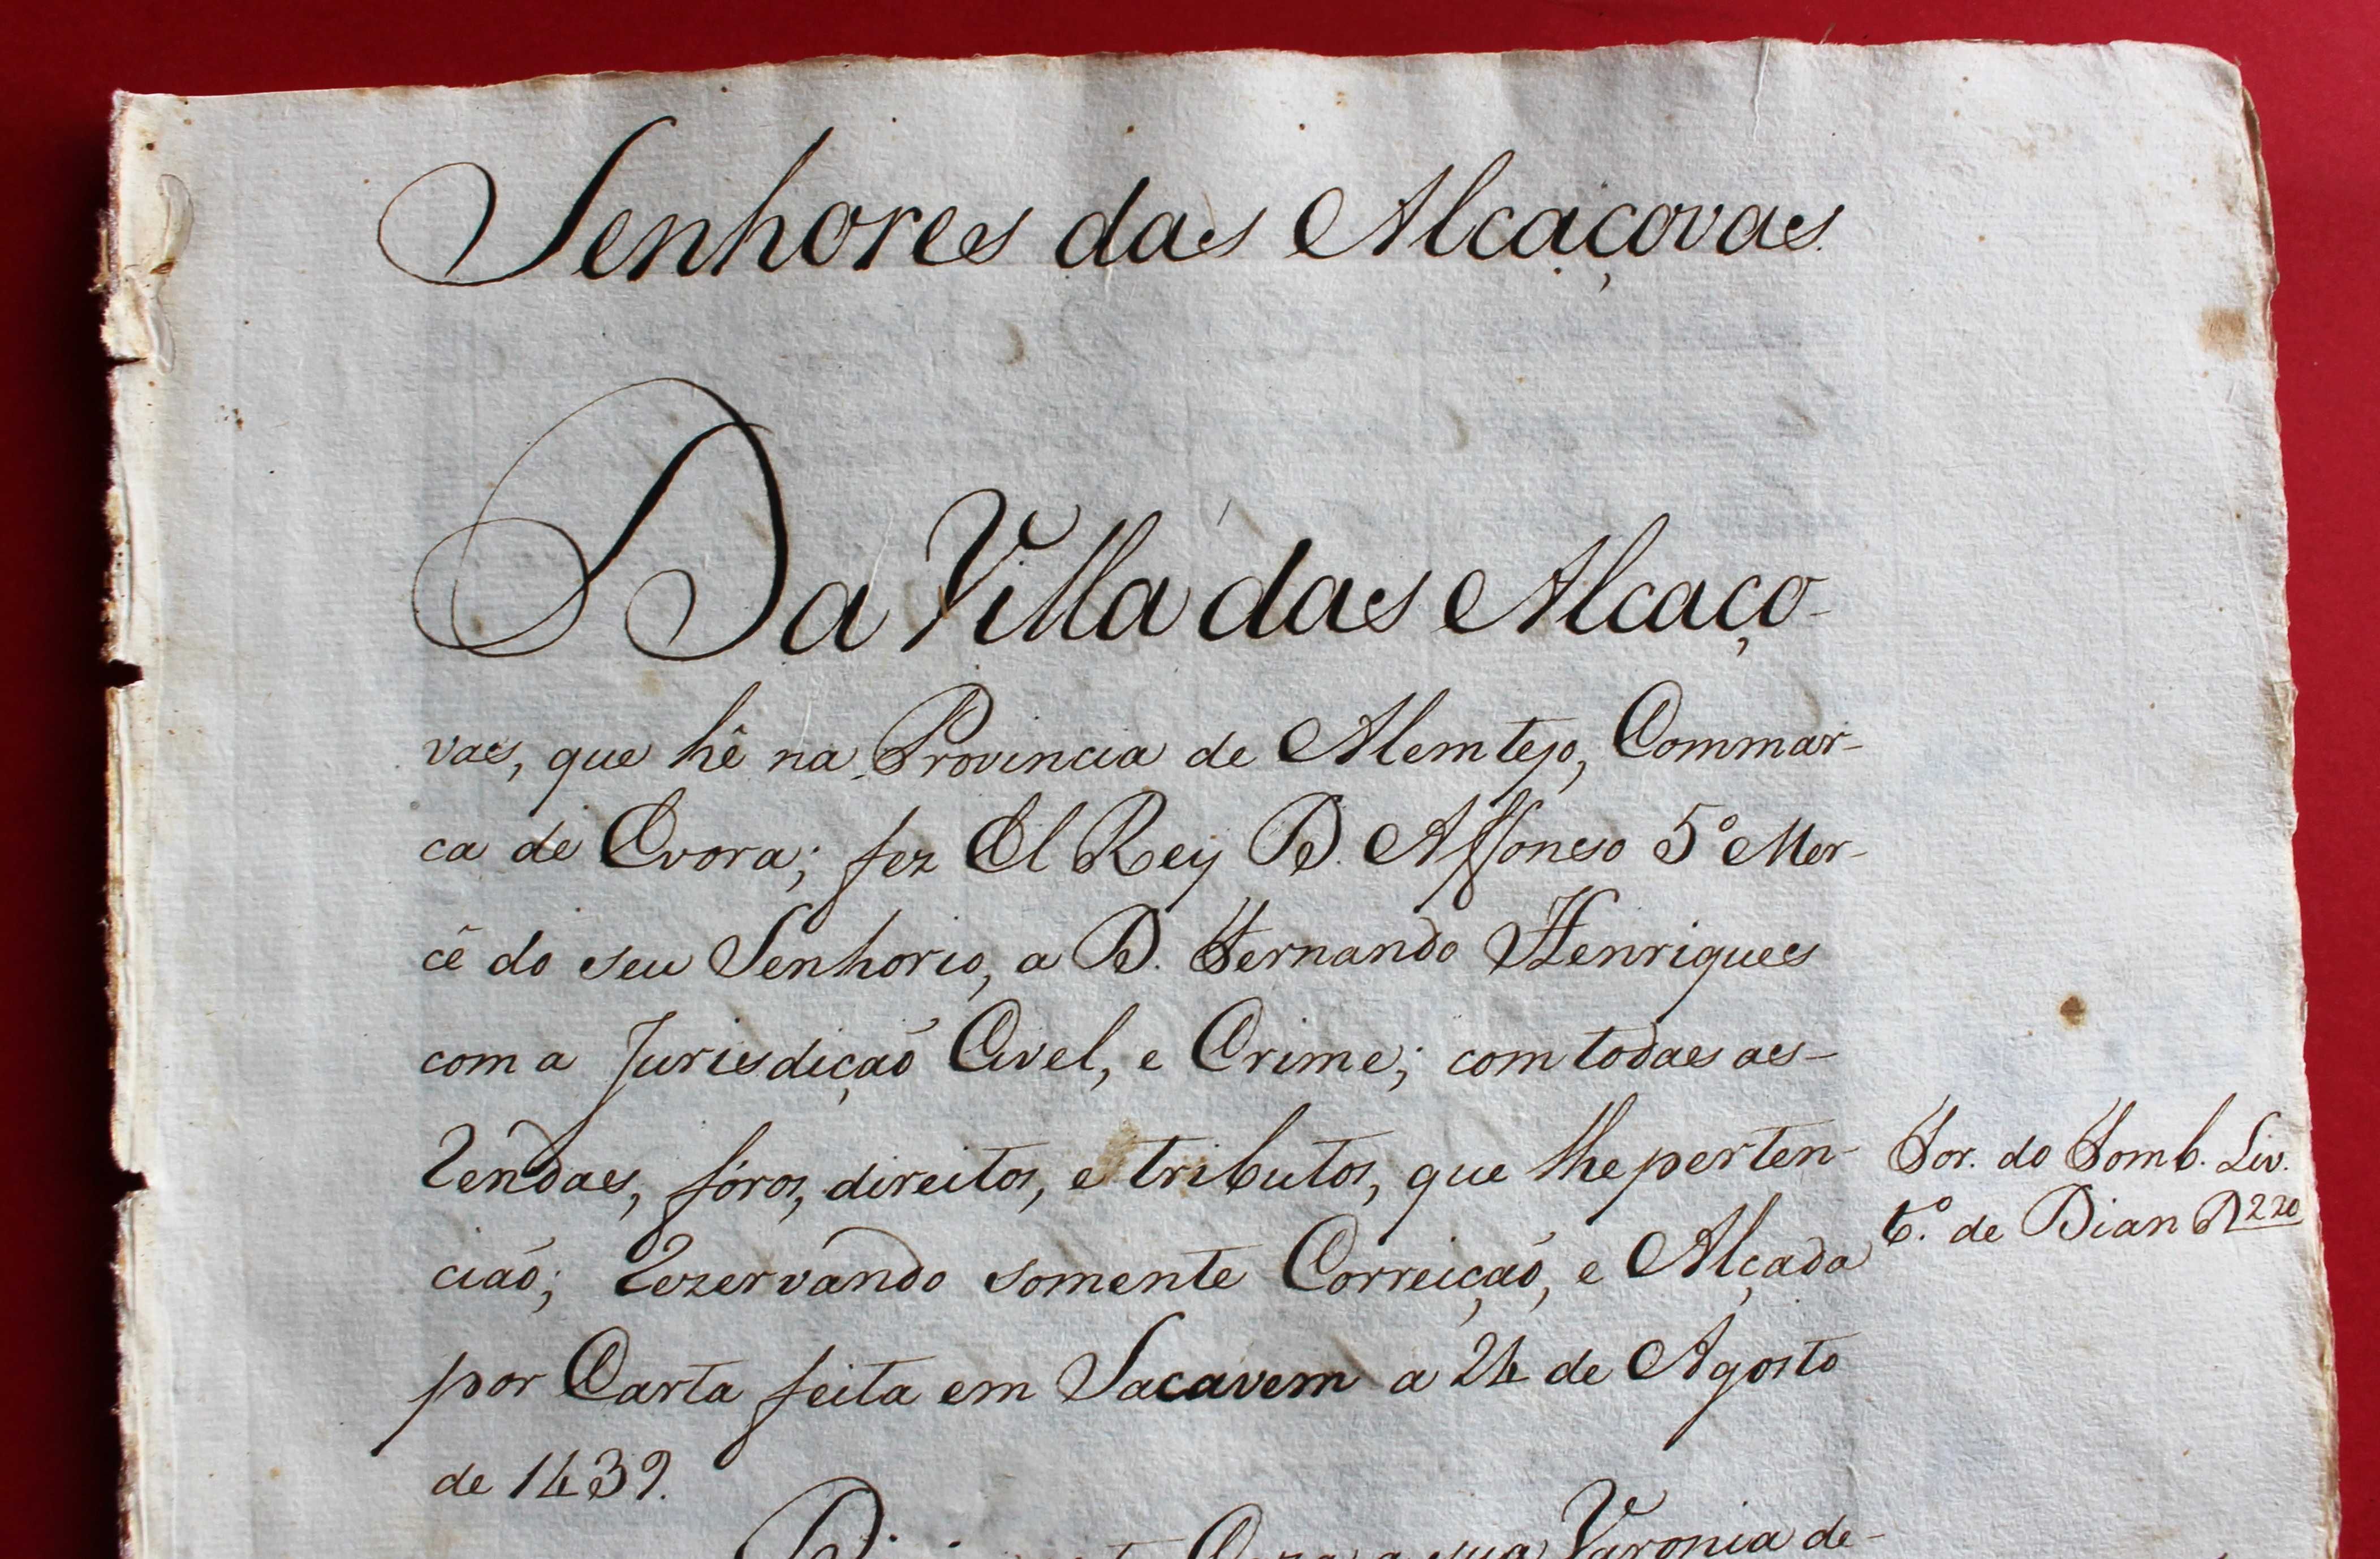 Senhores das Alcaçovas
Da Villa das Alcaço-
vas, que hê na Provincia de Alemtejo, Commar-
ca de Evora; fez El Rey D. Affonso 5º Mer-
cê do seu Senhorio, a D. Fernando Henriques
com a Jurisdição Civel, e Crime; com todas as
Rendas, fóros, direitos, e tributos, que lhe perten-
cião; Rezervando somente Correição, e Alçada
por Carta feita em Sacavem a 24 de Agosto
de 1439.
Tor. do Tomb. Liv.
6.º de Dian 220
Caza a sua Varonia de-